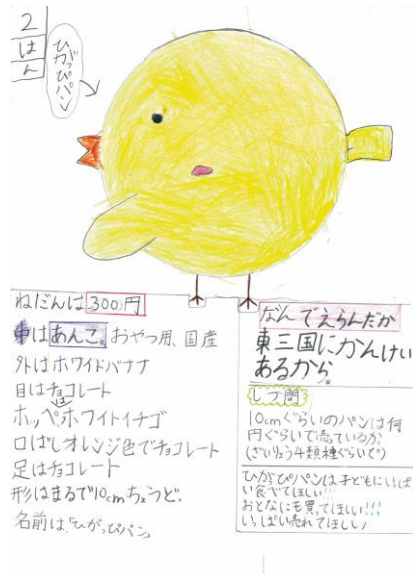 2
はん
ひがっぴパン
ねだんは300円
中はあんこ。おやつ用、国産
外はホワイトバナナ
目はチョコレート
ホッペはホワイトイチゴ
口ばしオレンジ色でチョコレート
足はチョコレート
形はまるで10cmちょうど。
名前は、「ひがっぴパン」
なんでえらんだか
東三国にかんけい
あるから。
しつ問
10cmぐらいのパンは何
円ぐらいで売っているか。
(ざいりょう4類種ぐらいで)
ひがっぴパンは子どもにいっぱ
い食べてほしい!!!
おとなにも買ってほしい!!!
いっぱい売れてほしい!